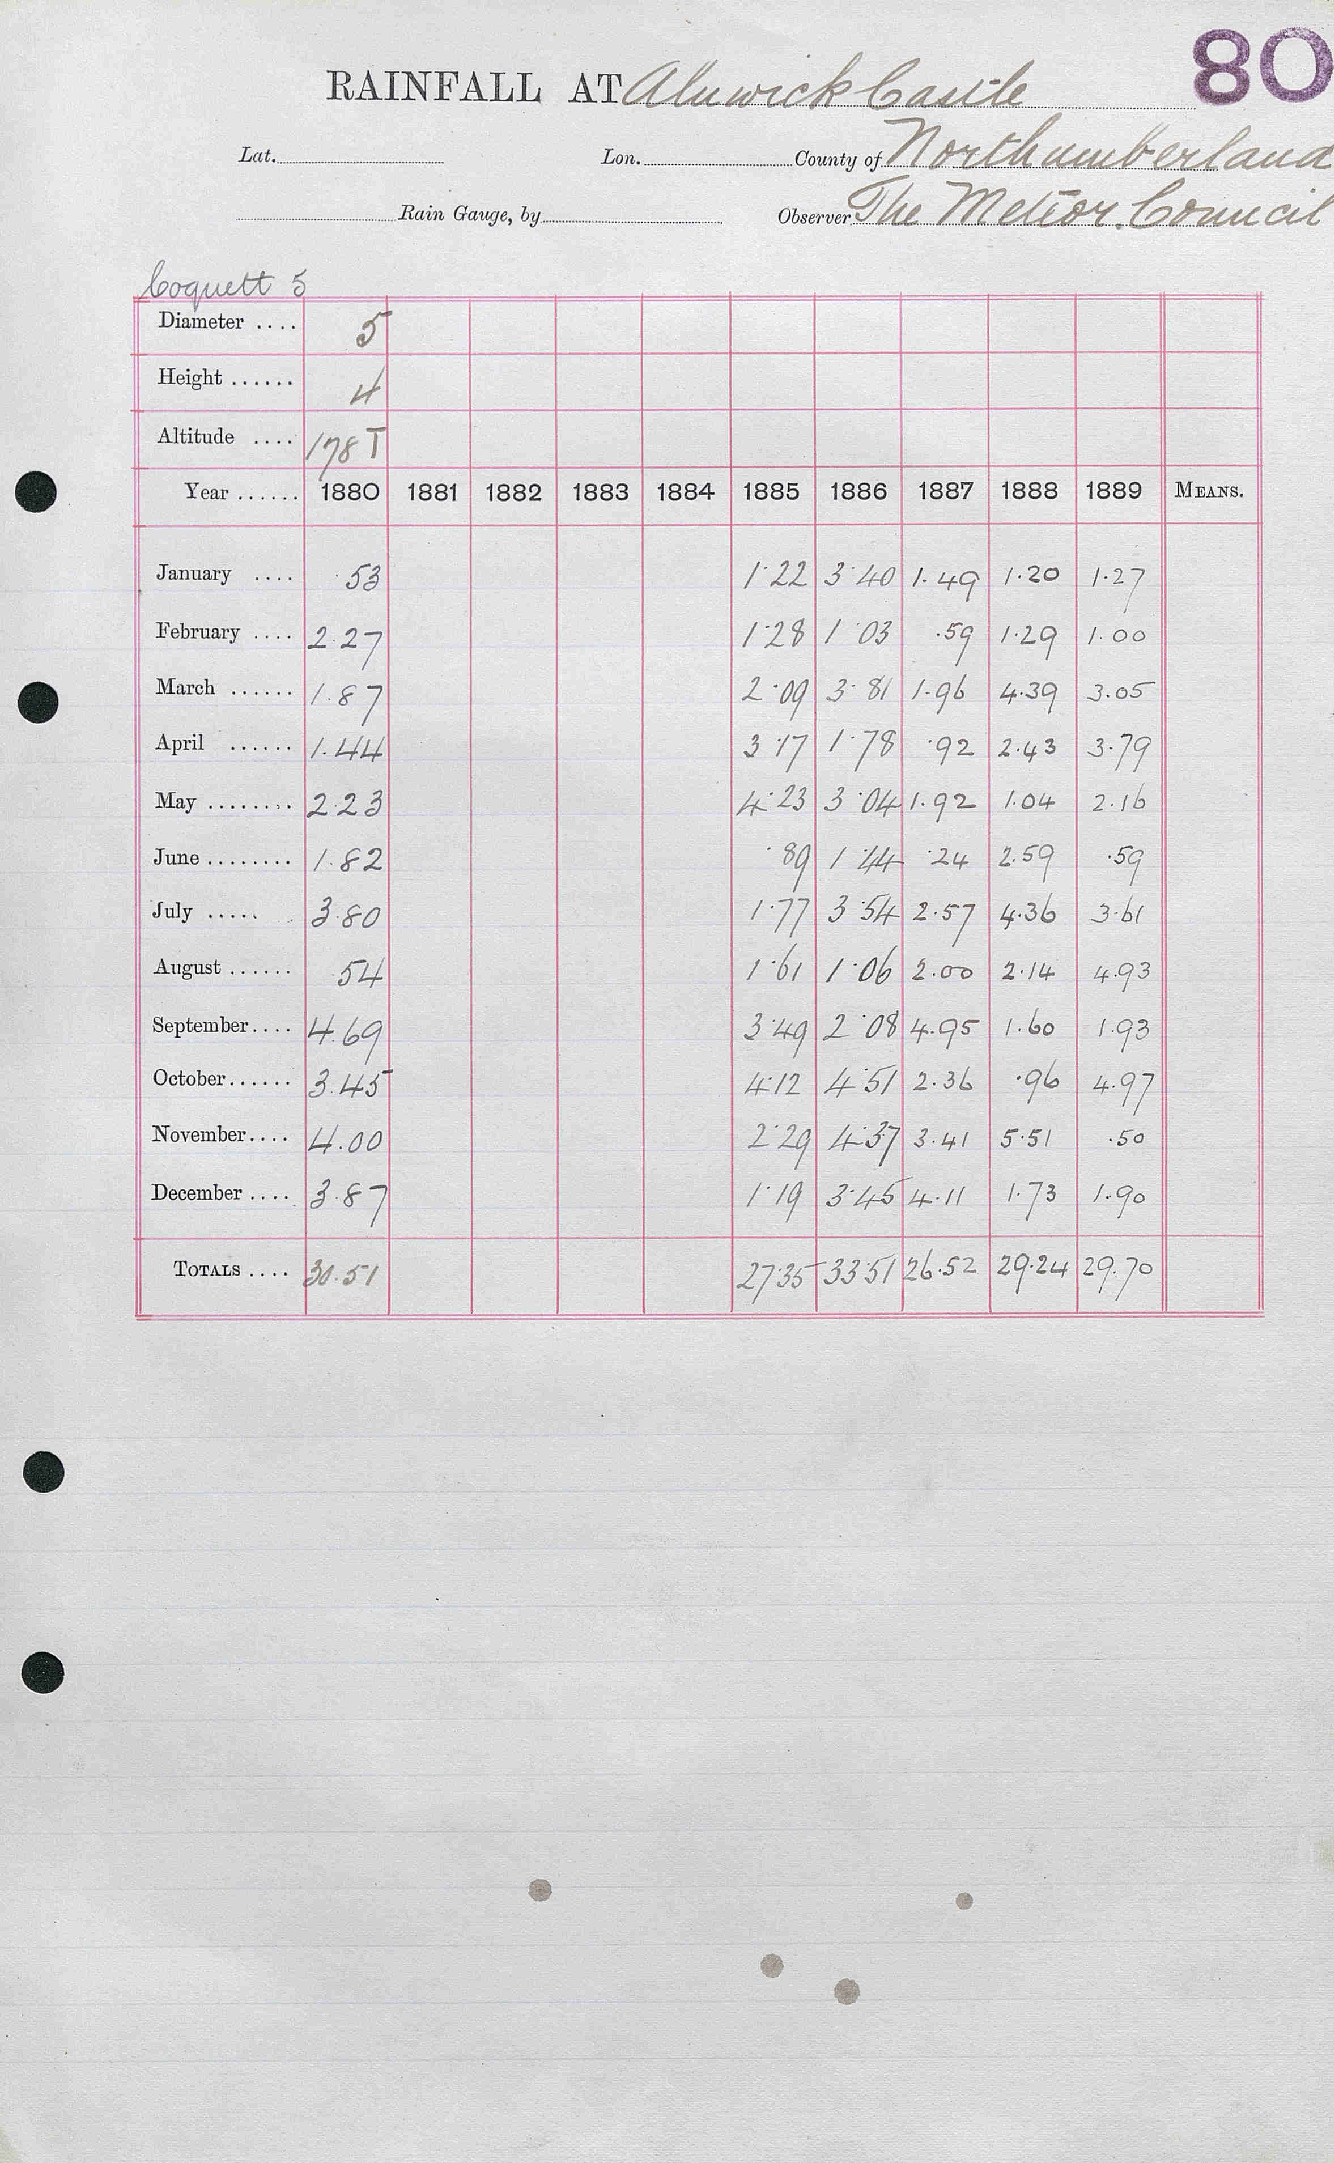 80
RAINFALL AT Alnwick Castle
Lat. Lon. County of Northumberland
Rain Gauge, by Observer The Meteor. Council
Coquett 5
Diameter .... 5
Height ...... 4
Altitude .... 178 T
Year ...... 1880 1881 1882 1883 1884 1885 1886 1887 1888 1889 MEANS.
January .... .53 1.22 3.40 1.49 1.20 1.27
February .... 2.27 1.28 1.03 .59 1.29 1.00
March ...... 1.87 2.09 3.81 1.96 4.39 3.05
April ...... 1.44 3.17 1.78 .92 2.43 3.79
May ........ 2.23 4.23 3.04 1.92 1.04 2.16
June ........ 1.82 .89 1.44 .24 2.59 .59
July ..... 3.80 1.77 3.54 2.57 4.36 3.61
August ...... .54 1.61 1.06 2.00 2.14 4.93
September .... 4.69 3.49 2.08 4.95 1.60 1.93
October ...... 3.45 4.12 4.51 2.36 .96 4.97
November .... 4.00 2.29 4.37 3.41 5.51 .50
December .... 3.87 1.19 3.45 4.11 1.73 1.90
TOTALS .... 30.51 27.35 33.51 26.52 29.24 29.70